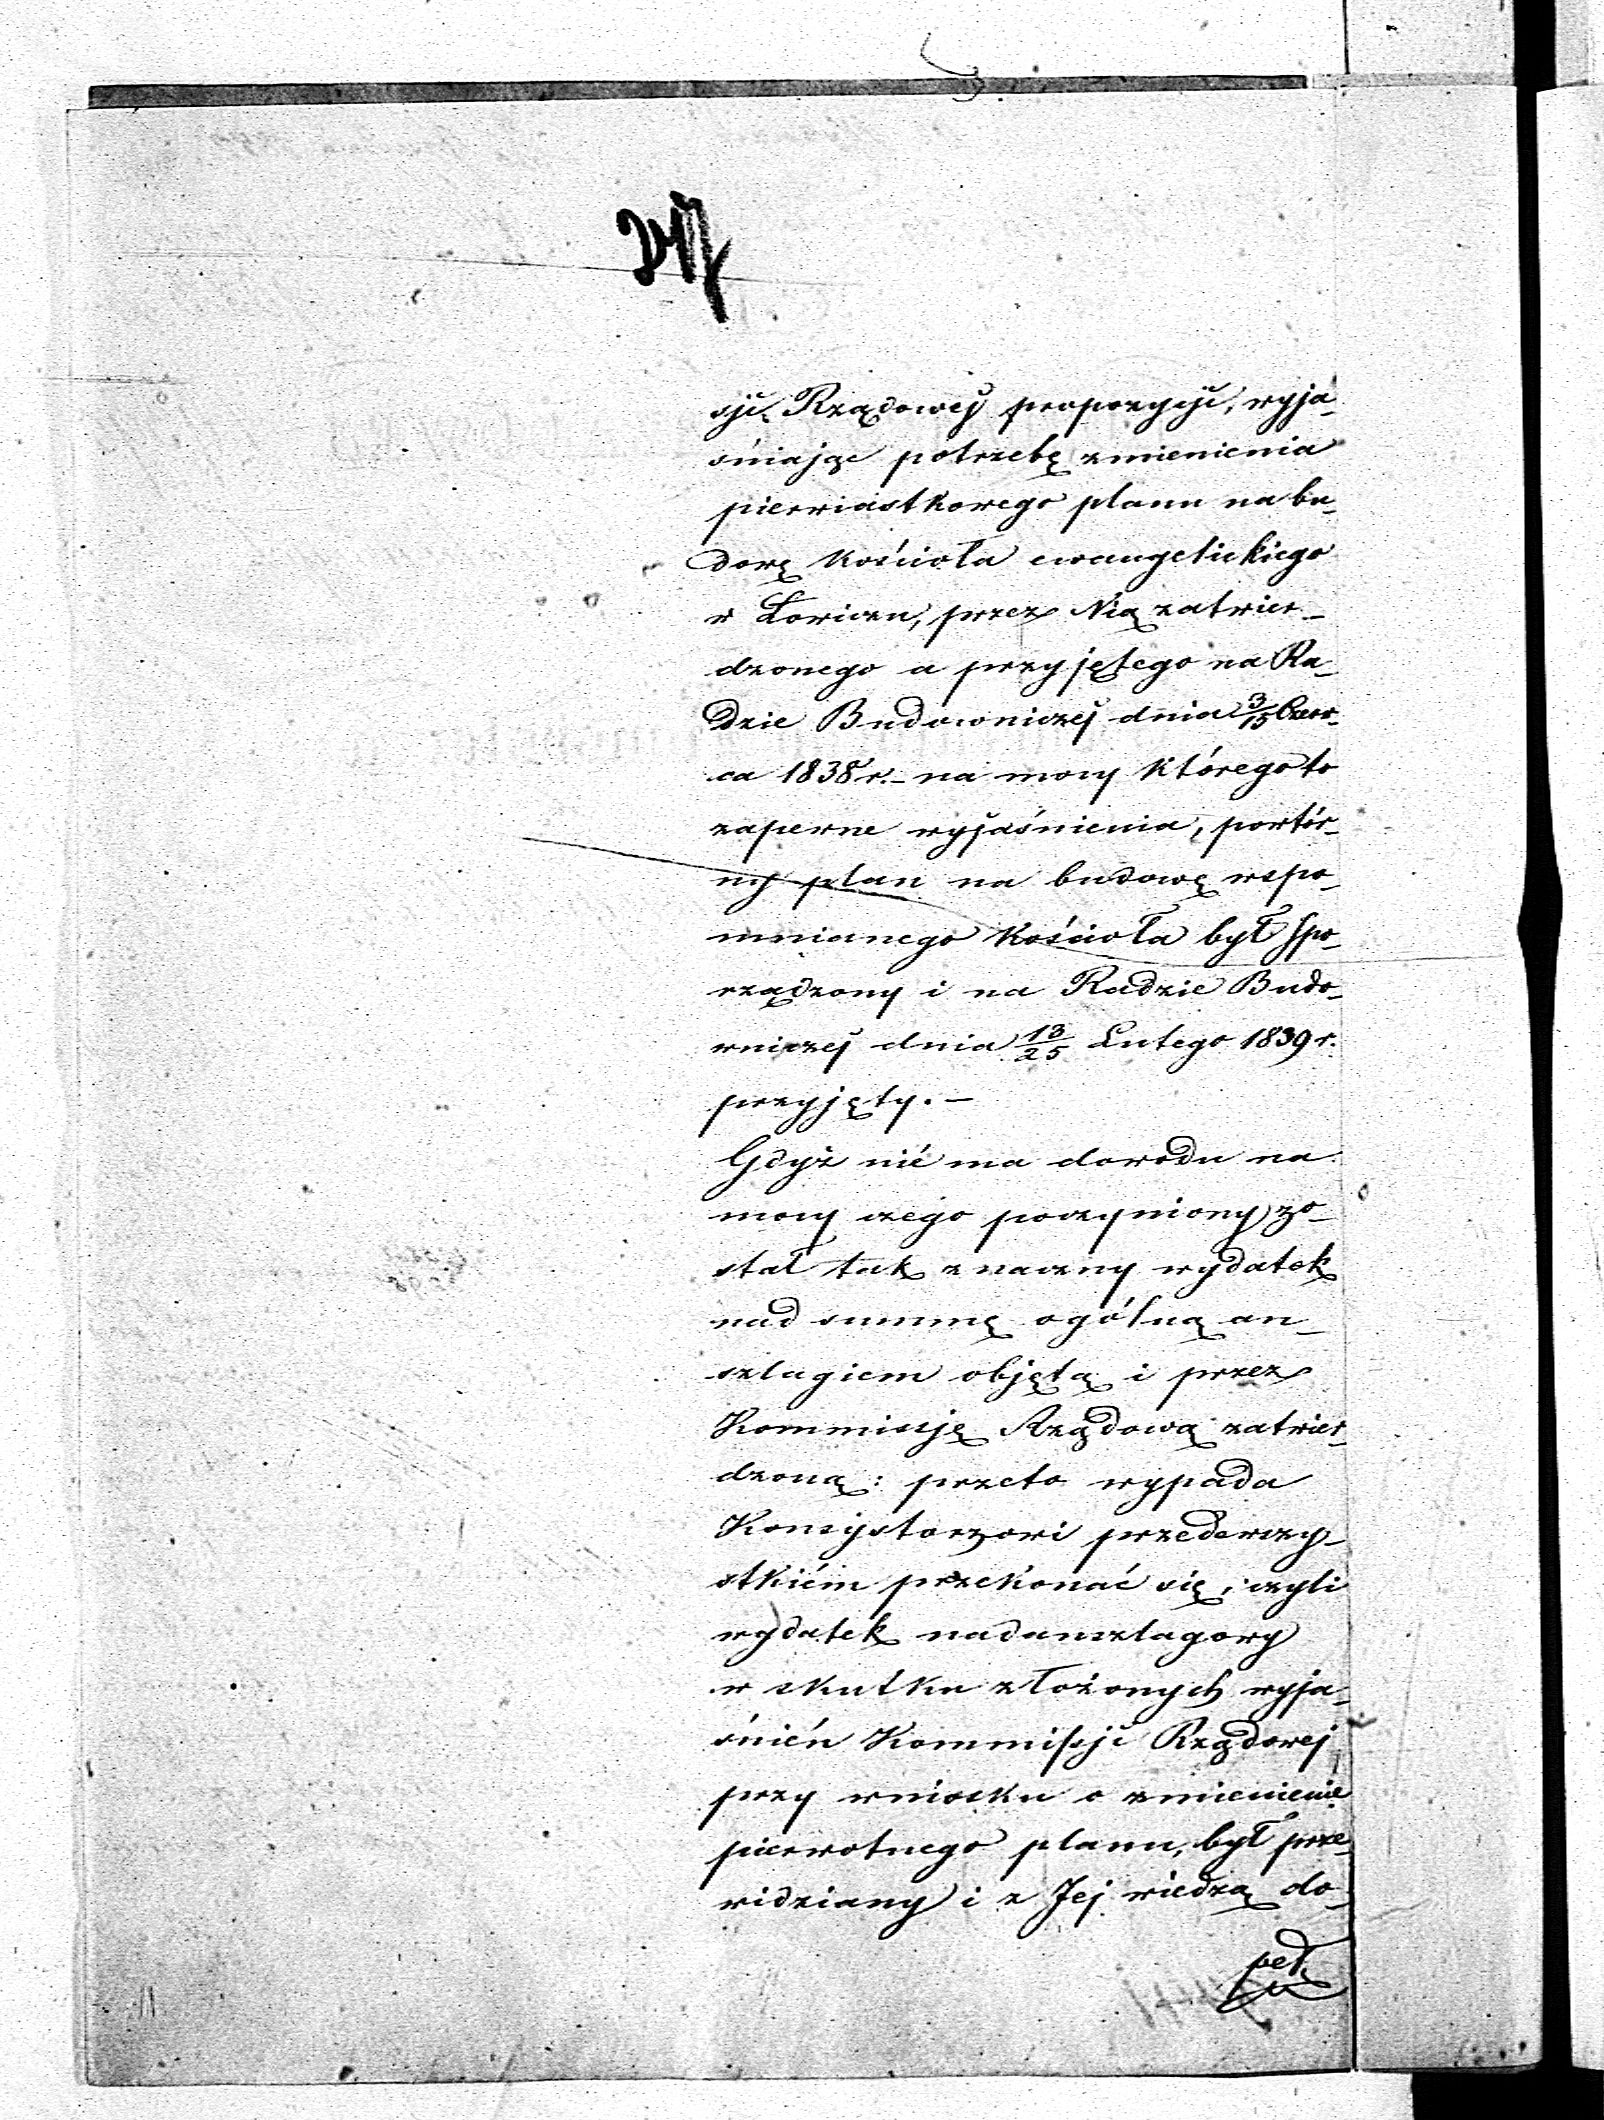 sji Rządowej propozycji, wyja-
śniając potrzebę zmienienia
pierwiastkowego planu na bu-
dowę Kościoła ewangelickiego
w Łowiczu, przez Nią zatwier-
dzonego a przyjętego na Ra-
dzie Budowniczej dnia 3/15 Czerw-
ca 1838 r. – na mocy którego to
zapewne wyjaśnienia, powtór-
ny plan na budowę wspo-
mnianego Kościoła był spo-
rządzony i na Radzie Budo-
wniczej dnia 13/25 Lutego 1839 r.
przyjęty. –
Gdyż nié ma dowodu na
mocy czego poczyniony zo-
stał tak znaczny wydatek
nad summę ogólną an-
szlagiem objętą i przez
Kommissję Rządową zatwier-
dzoną: przeto wypada
Konsystorzowi przedewszy-
stkiém przekonać się, czyli
wydatek nadanszlagowy
w skutku złożonych wyja-
śnień Kommissji Rządowej
przy wniosku o zmienienie
pierwotnego planu, był prze-
widziany i z Jej wiedzą do-
peł.